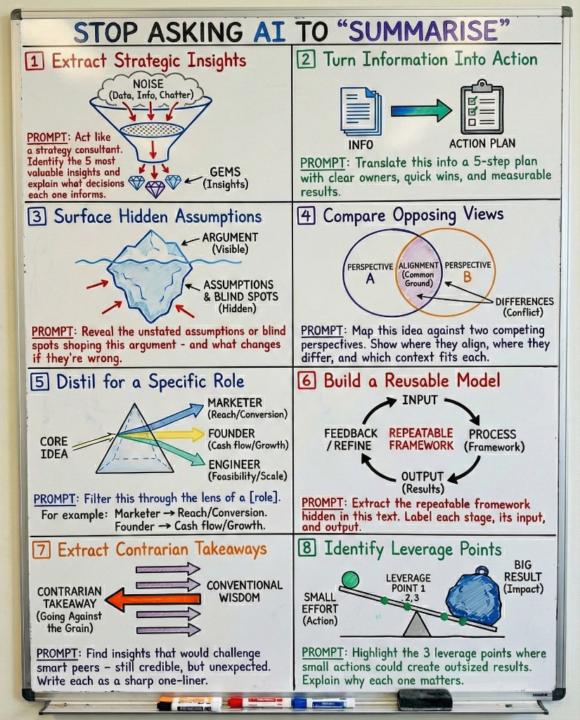 STOP ASKING AI TO “SUMMARISE”
1 Extract Strategic Insights
NOISE
(Data, Info, Chatter)
GEMS
(Insights)
PROMPT: Act like
a strategy consultant.
Identify the 5 most
valuable insights and
explain what decisions
each one informs.
2 Turn Information Into Action
INFO
ACTION PLAN
PROMPT: Translate this into a 5-step plan
with clear owners, quick wins, and measurable
results.
3 Surface Hidden Assumptions
ARGUMENT
(Visible)
ASSUMPTIONS
& BLIND SPOTS
(Hidden)
PROMPT: Reveal the unstated assumptions or blind
spots shoping this argument - and what changes
if they're wrong.
4 Compare Opposing Views
PERSPECTIVE
A
ALIGNMENT
(Common
Ground)
PERSPECTIVE
B
DIFFERENCES
(Conflict)
PROMPT: Map this idea against two competing
perspectives. Show where they align, where they
differ, and which context fits each.
5 Distil for a Specific Role
CORE
IDEA
MARKETER
(Reach/Conversion)
FOUNDER
(Cash flow/Growth)
ENGINEER
(Feasibility/Scale)
PROMPT: Filter this through the lens of a [role].
For example: Marketer → Reach/Conversion.
Founder → Cash flow/Growth.
6 Build a Reusable Model
INPUT
FEEDBACK
/ REFINE
REPEATABLE
FRAMEWORK
PROCESS
(Framework)
OUTPUT
(Results)
PROMPT: Extract the repeatable framework
hidden in this text. Label each stage, its input,
and output.
7 Extract Contrarian Takeaways
CONTRARIAN
TAKEAWAY
(Going Against
the Grain)
CONVENTIONAL
WISDOM
PROMPT: Find insights that would challenge
smart peers - still credible, but unexpected.
Write each as a sharp one-liner.
8 Identify Leverage Points
SMALL
EFFORT
(Action)
LEVERAGE
POINT 1
,2,3
BIG
RESULT
(Impact)
PROMPT: Highlight the 3 leverage points where
small actions could create outsized results.
Explain why each one matters.